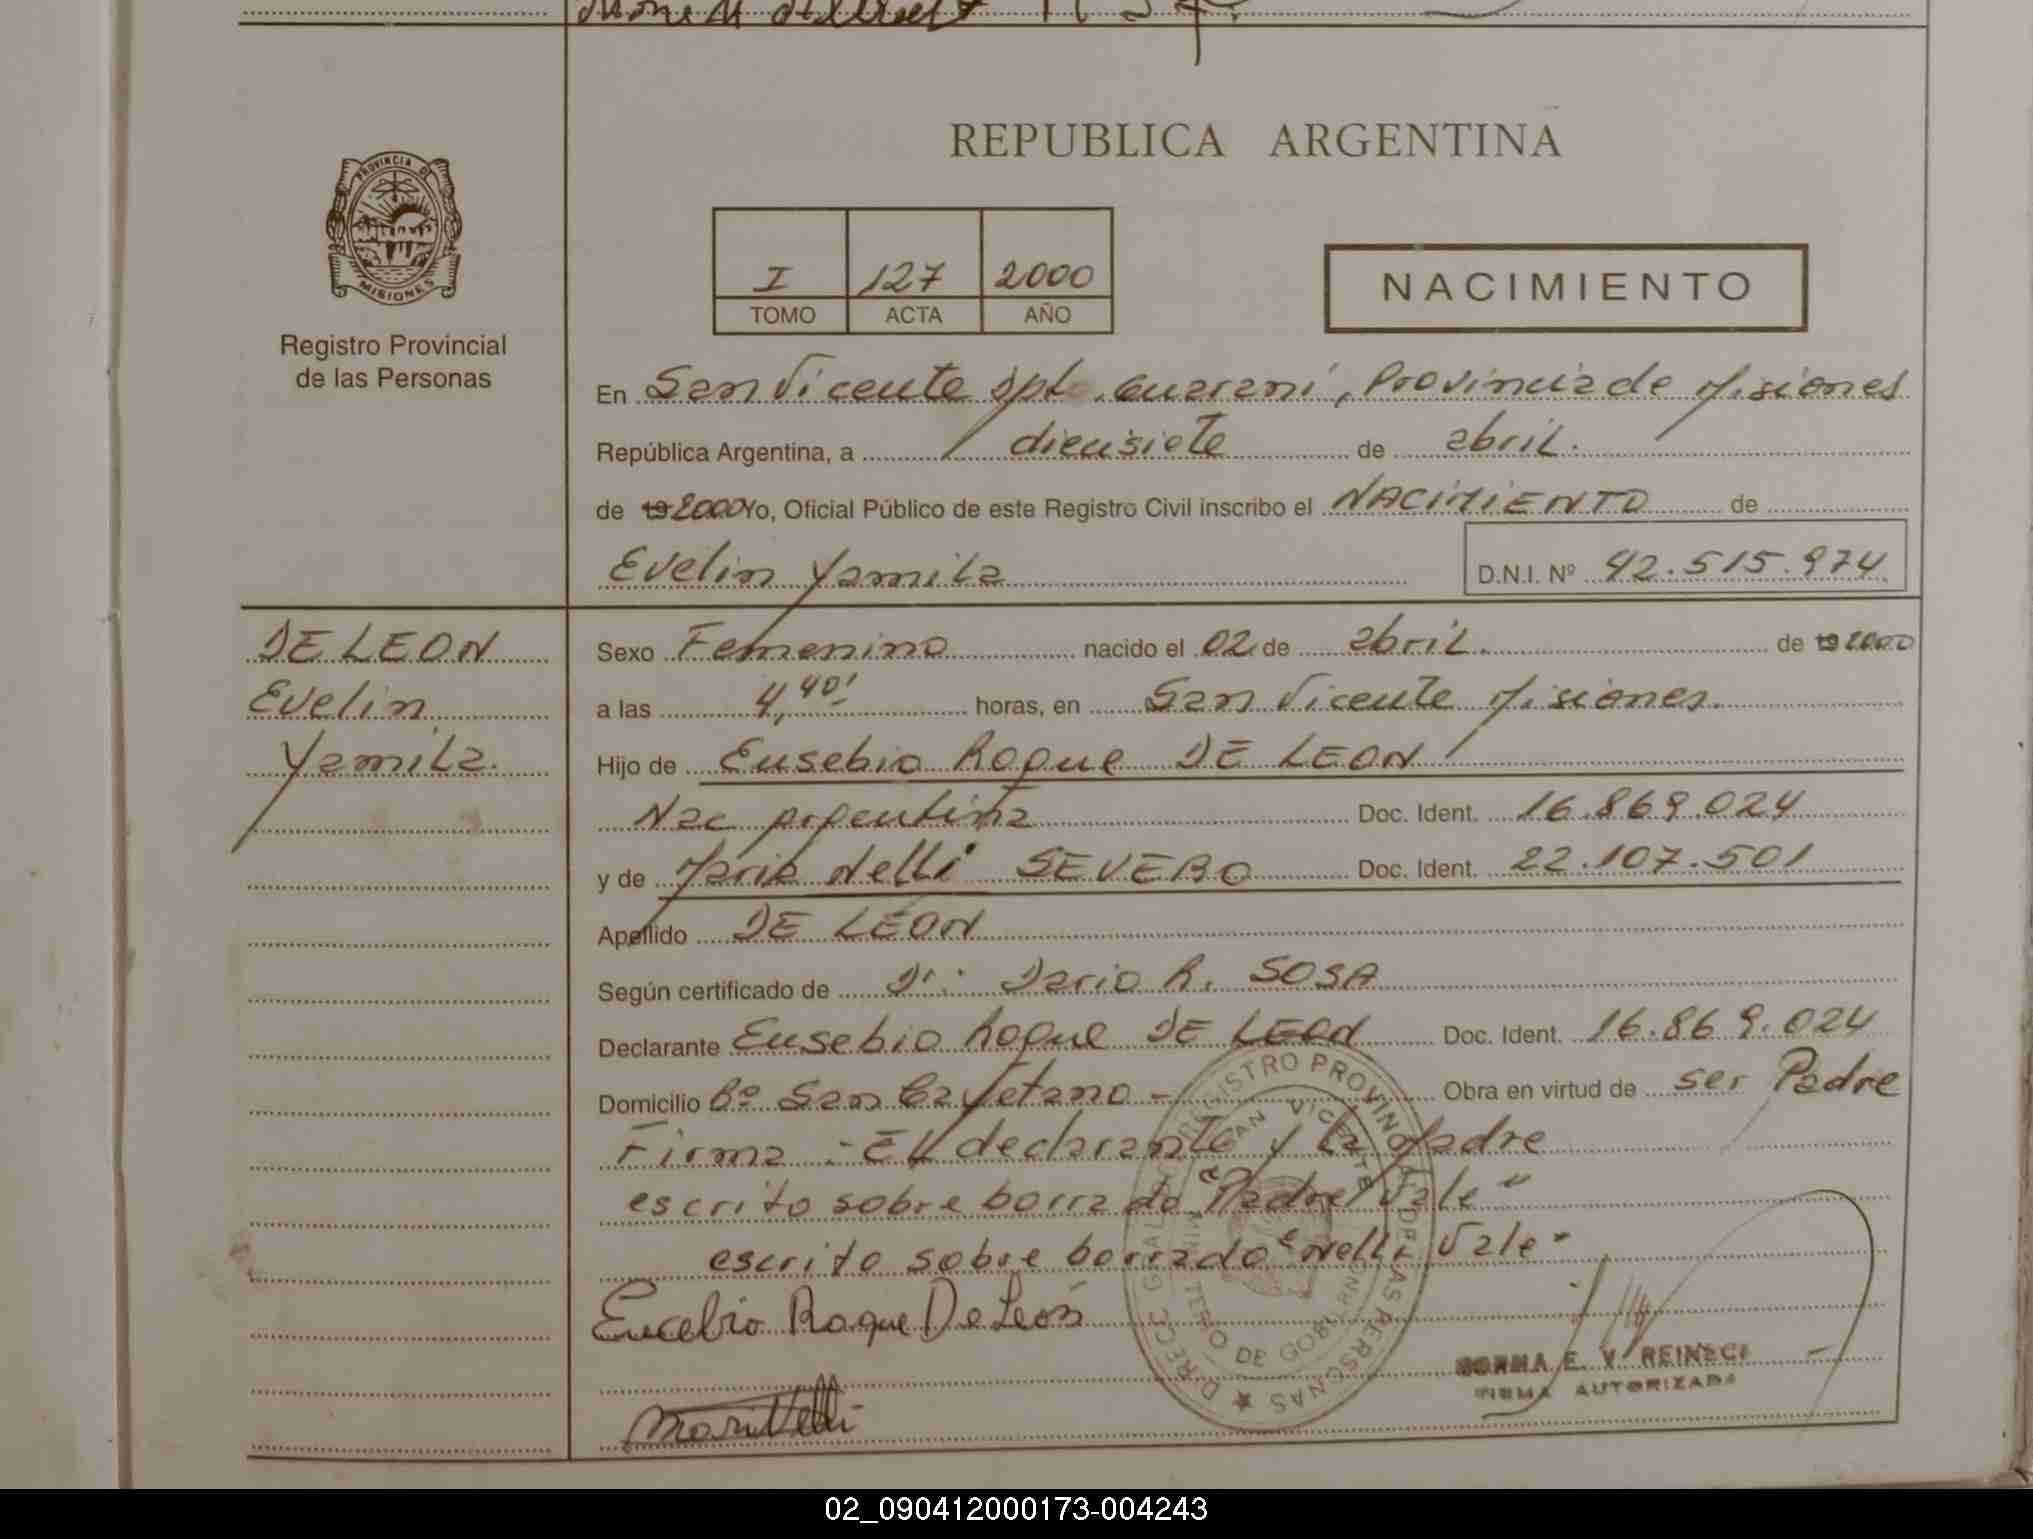 REPUBLICA ARGENTINA
PROVINCIA DE
MISIONES
Registro Provincial
de las Personas
I 127 2000
TOMO ACTA AÑO
NACIMIENTO
En San Vicente Dpto. Guarani, Provincia de Misiones
República Argentina, a diecisiete de abril.
de 19 2000 Yo, Oficial Público de este Registro Civil inscribo el NACIMIENTO de
Evelin Yamila D.N.I. Nº 42.515.974
DE LEON
Evelin
Yamila.
Sexo Femenino nacido el 02 de abril. de 19 2000
a las 4,40' horas, en San Vicente Misiones.
Hijo de Eusebio Roque DE LEON
Nac argentina Doc. Ident. 16.869.024
y de Maria Nelli SEVERO Doc. Ident. 22.107.501
Apellido DE LEON
Según certificado de Dr: Dario R. SOSA
Declarante Eusebio Roque DE LEON Doc. Ident. 16.869.024
Domicilio Bº San Cayetano - Obra en virtud de ser Padre
Firma - El declarante y la Madre
escrito sobre borrado "Padre Vale"
escrito sobre borrado "Nelli Vale"
Eucebio Roque De León
Mari Nelli
REGISTRO PROVINCIAL DE LAS PERSONAS
SAN VICENTE
MINISTERIO DE GOBIERNO
NORMA E. V. REINECK
FIRMA AUTORIZADA
02_090412000173-004243